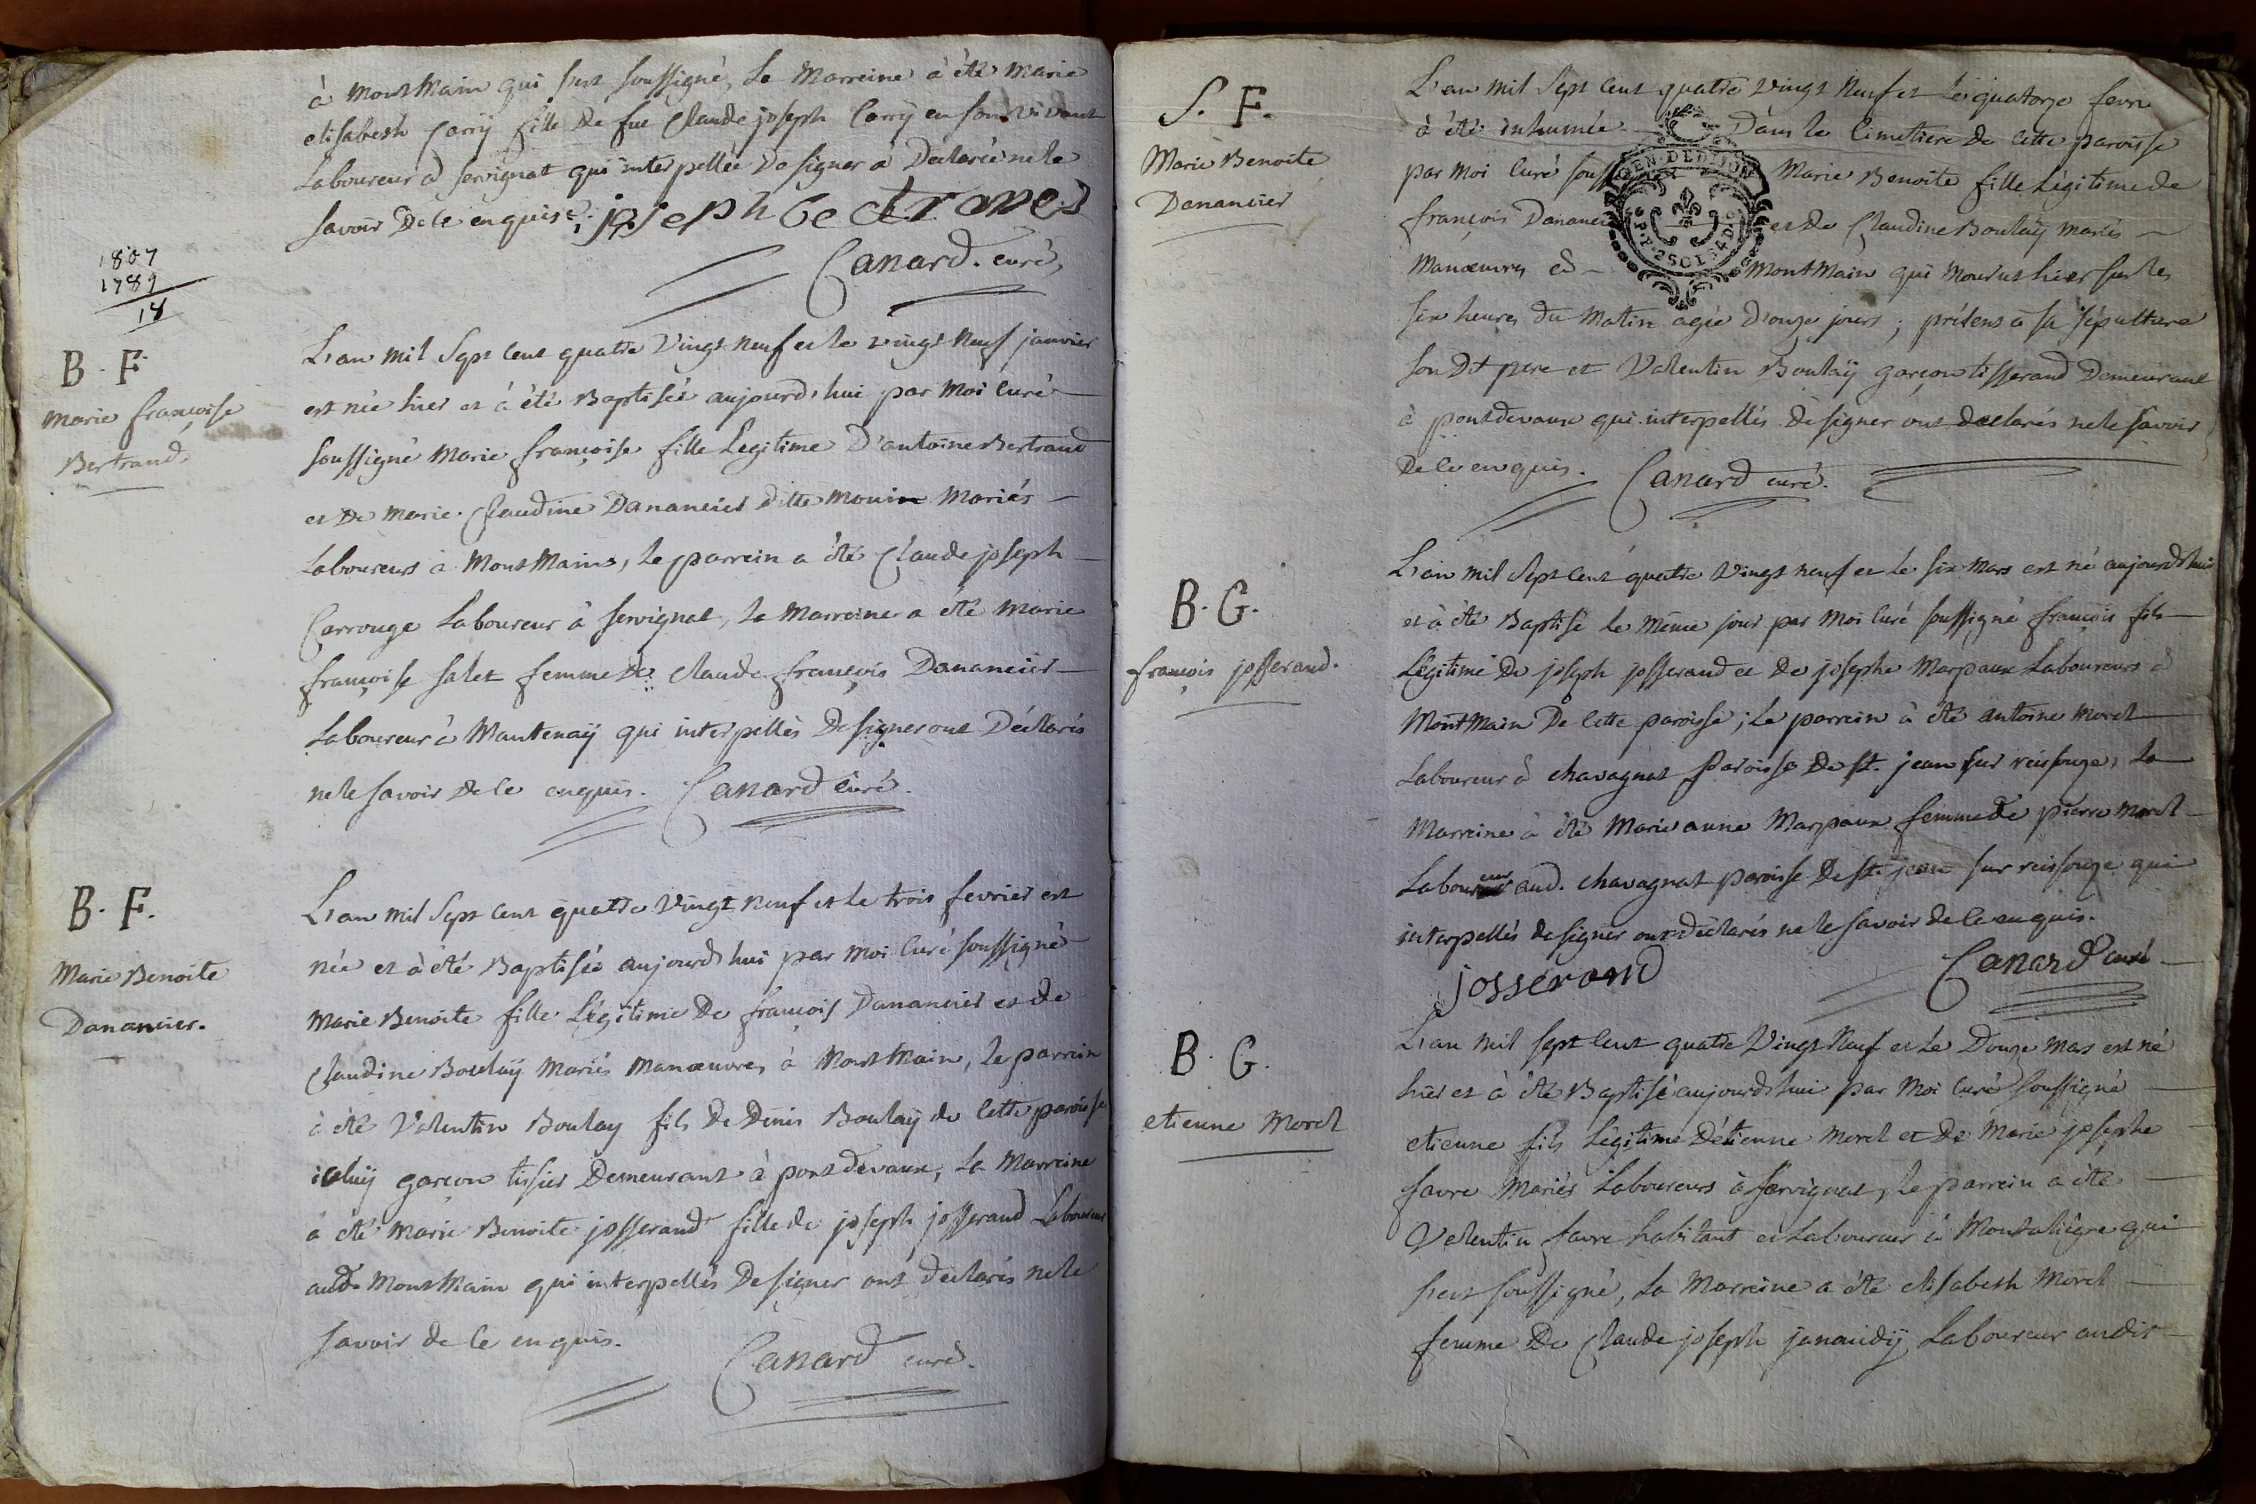 à MontMain qui s'est soussigné, La Marreine à été Marie
elisabesh Carrÿ fille De fue Claude joseph Carrÿ en son vivant
Laboureur à servignat qui interpellée De signer à Déclarée ne le
savoir De ce enquise. joseph
Canard. curé,
1807
1789
18
B. F.
Marie françoise
Bertrand.
L'an Mil Sept Cent quatre Vingt Neuf et le vingt Neuf janvier
est née hier et à été Baptisée aujourd'hui par Moi Curé
soussigné Marie françoise fille Légitime D'antoine Bertrand
et De Marie. Claudine Dananciér ditte Monin Mariés
Laboureurs à MontMain, Le parrein a été Claude joseph
Carrouge Laboureur à servignat, La Marreine a été Marie
françoise salet femme De claude françois Dananciér
Laboureur à Mantenaÿ qui interpellés De signer ont Déclarés
ne le savoir De Ce enquis. Canard Curé.
B. F.
Marie Benoite
Danancier.
L'an Mil Sept Cent quatre Vingt Neuf et Le trois fevrier est
née et à été Baptisée aujourd'hui par Moi Curé soussigné
Marie Benoite fille Légitime De françois Danancier et de
Claudine Boulaÿ Mariés Manœuvres à MontMain, Le parrein
à été Valentin Boulay fils De Denis Boulaÿ de Cette paroisse
iceluÿ garçon tissier Demeurant à pont devaux, La Marreine
à été Marie Benoite josserand fille de joseph josserand Laboureur
aud. MontMain qui interpellés De signer ont déclarés ne le
savoir de Ce enquis.
Canard curé.
S. F.
Marie Benoite
Danancier
L'an Mil Sept Cent quatre Vingt Neuf et Le quatorze fevri
à été inhumée Dans le Cimetiere De Cette paroisse
par Moi Curé Marie Benoite fille Légitime de
françois et De Claudine Boulaÿ Mariés
Manœuvres à MontMain qui Mourut hier sur les
six heures du Matin agée D'onze jours ; présens à sa sépulture
son Dt pere et Valentin Boulaÿ garçon tisserand Demeurant
à pontdevaux qui interpellés De signer ont declarés ne le savoir
De Ce enquis. Canard curé.
GEN. DE DIJON
2 SOLS 4 D.
B. G.
françois josserand.
L'an Mil Sept Cent quatre Vingt neuf et Le six Mars est né aujourd'hui
et à été Baptisé le Même jour par Moi Curé soussigné françois fils
Légitime De joseph josserand et De josephe Marpaux Laboureurs à
MontMain De Cette paroisse ; Le parrein à été antoine Morel
Laboureur à chavagnat paroisse De St. jean sur reissouze, La
Marreine à été Marie anne Marpaux femme de pierre Morel
Laboureur aud. chavagnat paroisse De St. jean sur reissouze qui
interpellés De signer ont Déclarés ne le savoir de Ce enquis.
josserand Canard curé
B. G.
etienne Morel
L'an Mil sept Cent quatre Vingt Neuf et Le Douze Mars est né
hier et à été Baptisé aujourd'hui par Moi Curé soussigné
etienne fils Légitime D'étienne Morel et De Marie josephe
favre Mariés Laboureurs à servignat, Le parrein a été
Valentin favre habitant et Laboureur à Montaliègre qui
s'est soussigné, La Marreine a été elisabesh Morel
femme De Claude joseph janaudÿ Laboureur audit